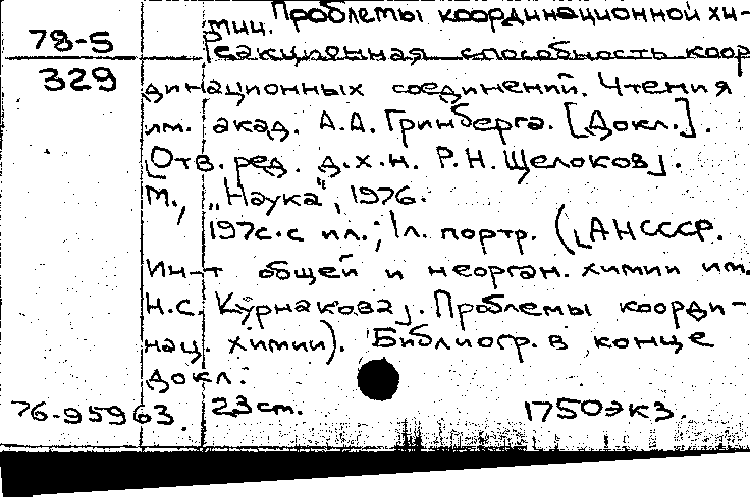 Проблемы координационной хи-
мии.
78-5
Реакционная способность коор
329
динационных соединений. Чтения
им. акад. А.А. Гринберга. [Докл.].
[Отв. ред. д.х.н. Р.Н. Щелоков].
М., „Наука", 1976.
197с. с ил.; 1л. портр. ([АНСССР.
Ин-т общей и неорган. химии им.
Н.С. Курнакова]. Проблемы коорди-
нац. химии). Библиогр. в конце
докл.
76-95963. 23см. 1750экз.